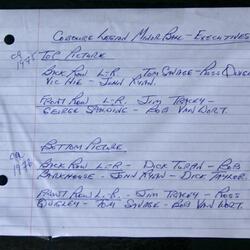 COBOURG LEGION MINOR BALL - EXECUTIVES
ca 1975
TOP PICTURE
BACK ROW L-R. TOM SAVAGE - ROSS
VIC NIE - JOHN RYAN.
FRONT ROW L-R. JIM TRACEY -
GEORGE SPALDING - BOB VAN WORT.
ca 1976
BOTTOM PICTURE
BACK ROW L-R - DICK TURAN - BOB
BARKHOUSE - JOHN RYAN - DICK TAYLOR.
FRONT ROW L.R. - JIM TRACEY - ROSS
QUIGLEY - TOM SAVAGE - BOB VAN WORT.